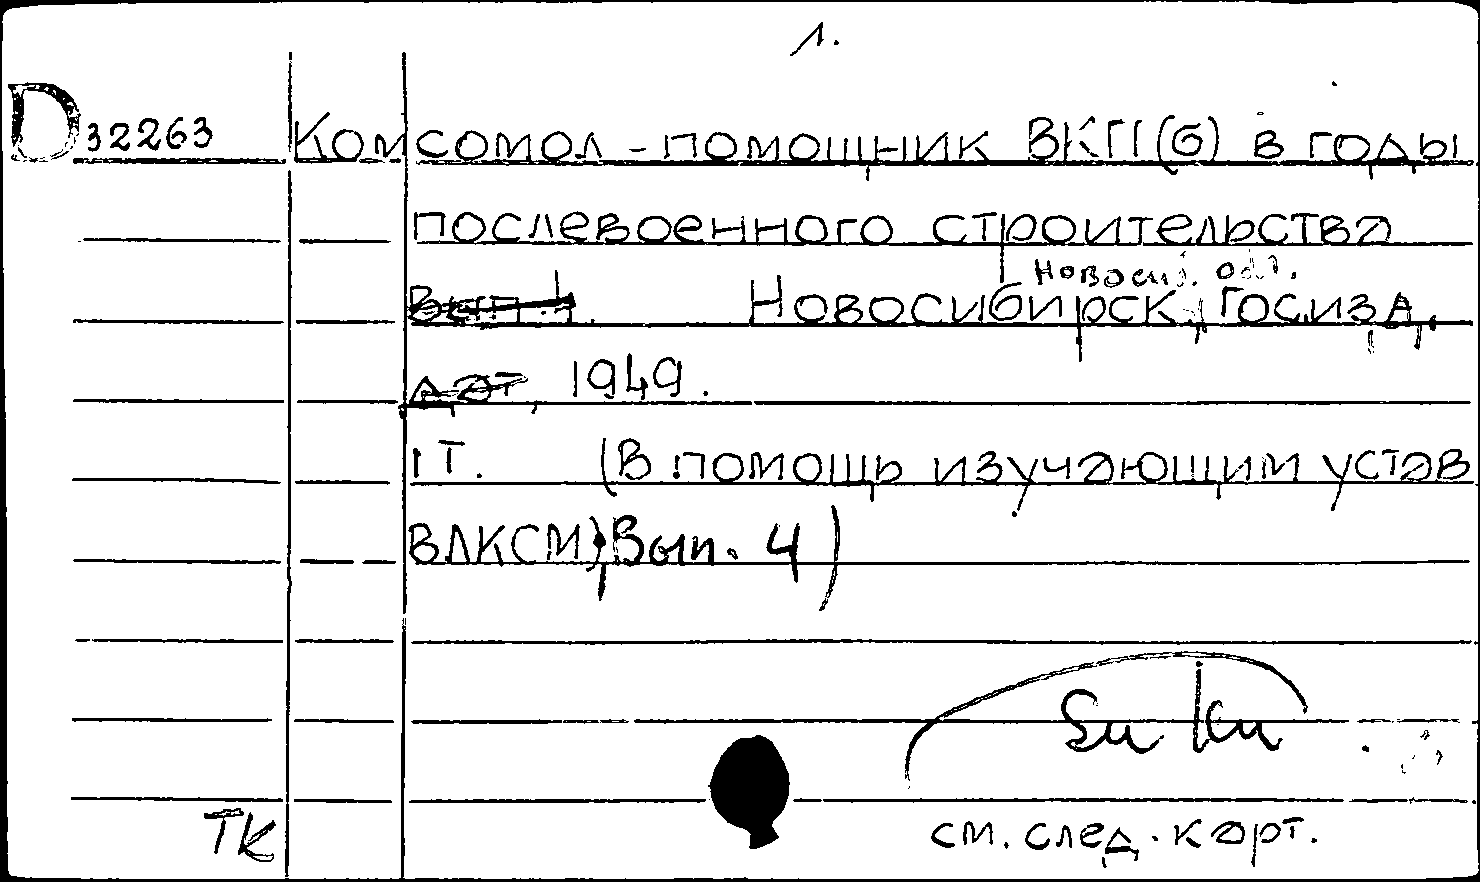 1.
D 32263 Комсомол - помощник ВКП(б) в годы
послевоенного строительства
Новосиб. обл.
Вып. 4. Новосибирск, Госизд,
1949.
1 т. (В помощь изучающим устав
ВЛКСМ; Вып. 4)
см. след. карт.
ТК